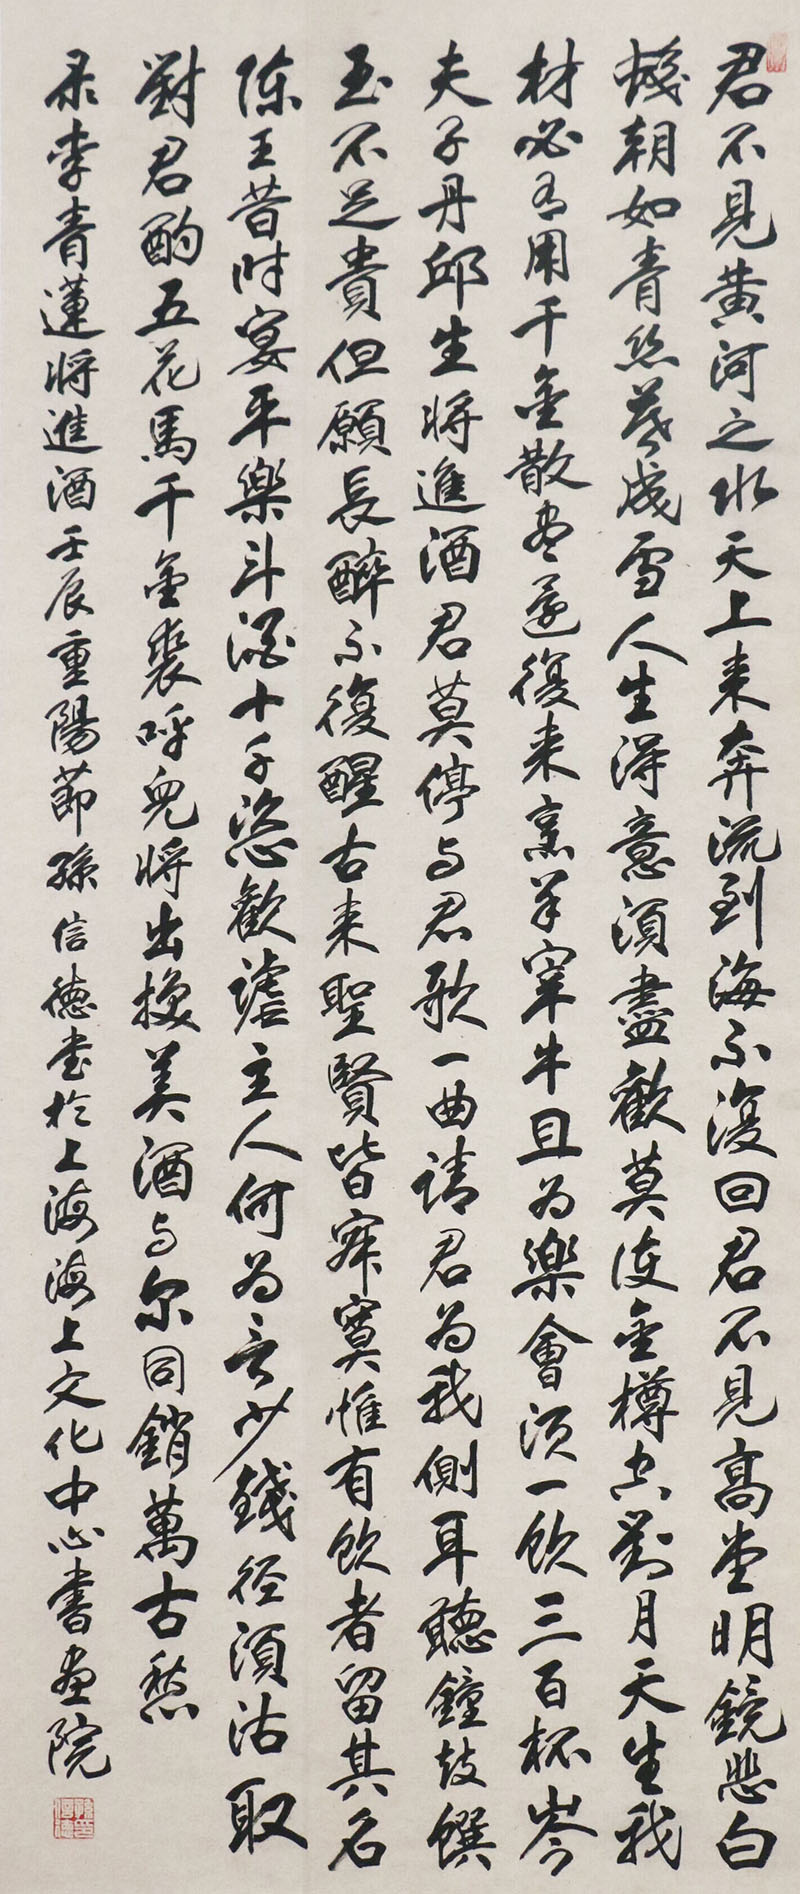 君不見黄河之水天上来奔流到海不復回君不見高堂明鏡悲白
髮朝如青絲暮成雪人生得意須盡歡莫使金樽空對月天生我
材必有用千金散盡還復来烹羊宰牛且为樂會須一飲三百杯岑
夫子丹邱生將進酒君莫停与君歌一曲請君为我側耳聽鐘鼓饌
玉不足貴但願長醉不復醒古来聖賢皆寂寞惟有飲者留其名
陳王昔時宴平樂斗酒十千恣歡謔主人何为言少錢径須沽取
對君酌五花馬千金裘呼兒將出換美酒与尔同銷萬古愁
录李青蓮將進酒壬辰重陽節孫信德书於上海海上文化中心書画院